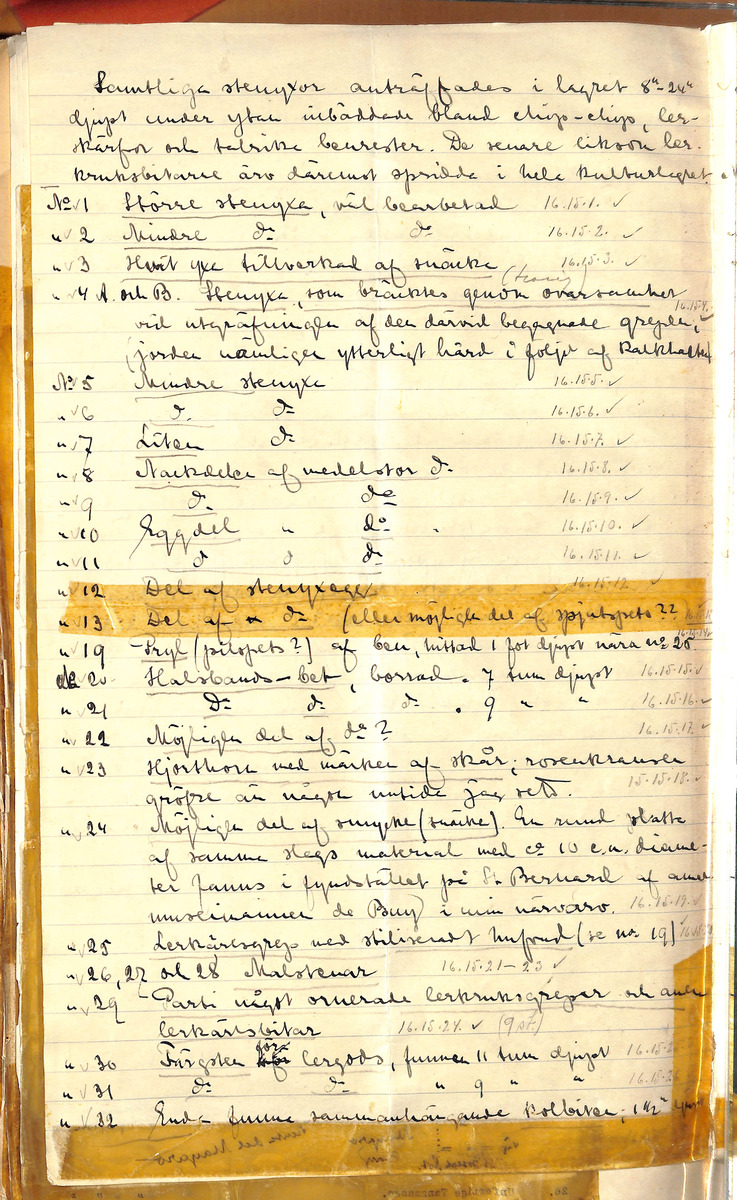 Samtliga stenyxor anträffades i lagret 8"-24"
djupt under ytan inbäddade bland chip-chip, ler-
skärfor och talrika benrester. De senare liksom ler-
kruksbitarne äro däremot spridda i hela kulturlagret.
No 1 Större stenyxa, väl bearbetad 16.15.1. ✓
" 2 Mindre do do 16.15.2. ✓
" 3 Hvit yxa tillverkad af snäcka 16.15.3. ✓
" 4 A. och B. Stenyxa, som bräcktes genom ovarsamhet 16.15.4. ✓
vid utgräfningen af den därvid begagnade grejden,
(jorden nämligen ytterligt hård i följd af kalkhalten)
No 5 Mindre stenyxa 16.15.5. ✓
" 6 do do 16.15.6. ✓
" 7 Liten do 16.15.7. ✓
" 8 Nackdelen af medelstor do 16.15.8. ✓
" 9 do do 16.15.9. ✓
" 10 Eggdel " do " 16.15.10. ✓
" 11 d d do 16.15.11. ✓
" 12 Del af stenyxegg 16.15.12. ✓
" 13 Del af do (eller möjligen del af spjutspets??
" 19 Pryl (pilspets?) af ben, hittad 1 fot djupt nära no 25 16.15.14 ✓
" 20 Halsbands-bit, borrad. 7 tum djupt 16.15.15. ✓
" 21 Do do do . 9 " " 16.15.16. ✓
" 22 Möjligen del af do? 16.15.17. ✓
" 23 Hjorthorn med märken af skår; rosenkransen
gröfre än någon nutida jag sett. 15.15.18. ✓
" 24 Möjligen del af smycke (snäcka). En rund platta
af samma slags material med ca 10 c.m. diame-
ter fanns i fyndstället på St. Bernard af amer.
museimannen de Buy i min närvaro. 16.15.19. ✓
" 25 Lerkärlsgrep med stiliseradt hufvud (se no 19)
" 26, 27 och 28 Malstenar 16.15.21-23 ✓
" 29 Parti något ornerade lerkruksgrepar och andra
lerkärlsbitar 16.15.24. ✓ (9 st.)
" 30 Färgsten för lergods, funnen 11 tum djupt
" 31 do do " 9 " "
" 32 Enda funna sammanhängande kolbiten, 1 1/2"